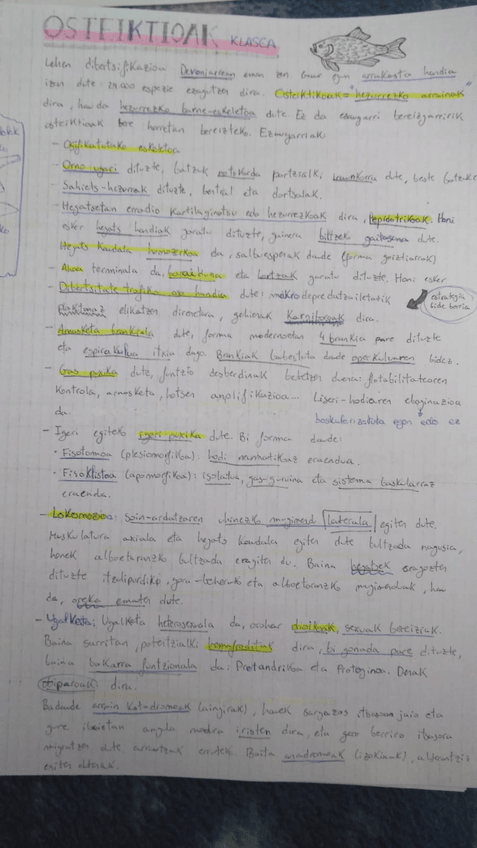 OSTEIKTIOAK KLASEA
Lehen dibertsifikazioa Devoniarrean eman zen. Gaur egun arrakasta handia
izan dute: 29.000 espezie ezagutzen dira. Osteiktioak = "hezurrezko arrainak"
dira, hau da hezurrezko barne-eskeletoa dute. Ez da ezaugarri bereizgarririk
osteiktioak bere horretan bereizteko. Ezaugarriak:
- Osifikatutako eskeletoa
- Oso ugari dituzte, batzuk partzialki, dute, beste batzuk
- Saihets-hezurrak dituzte, bentral eta dortsalak.
- Hegatsetan erradio kartilaginotsu edo hezurrezkoak dira, Hori
esker hegats handiak garatu dituzte, gainera biltzek gaitasuna dute.
Hegats kaudala homozerkoa da, salbuespenak daude (forma goiztiarrak)
- Ahoa terminala da, eta hortzak garatu dituzte. Honi esker
Dibertsitate trofiko oso handia dute: makrodepredatzailetatik
elikatzen direnetara, gehienak karniboroak dira.
estrategia
- Arnasketa brankiala dute, forma modernoetan 4 brankia pare dituzte
eta espirakulua itxia dago. Brankiak babestuta daude operkuluaren bidez.
- Gas puxika dute, funtzio desberdinak betetzen dituena: flotabilitatearen
kontrola, arnasketa, hotsen anplifikazioa... Liseri-hodiaren ebaginazioa
da. baskularizatuta egon edo ez
- Igeri egiteko igeri-puxika dute. Bi forma daude:
· Fisotomoa (plesiomorfikoa): hodi neumatikoaz eraendua.
· Fisoklistoa (apomorfikoa): isolatua, gas-guruina eta sistema baskularraz
eraenda.
- Lokomozioa: soin-ardatzaren uhinezko mugimendu laterala egiten dute.
Muskulatura axiala eta hegats kaudala egiten dute bultzada nagusia,
honek alboetaranzko bultzada eragiten du. Baina besabek eragozten
dituzte itzulipurdiko, gora-beherako eta alboetaranzko mugimenduak, hau
da, oreka ematen dute.
- Ugalketa: Ugalketa heterosexuala da, orohar dioikoak, sexuak bereiziak.
Baina sarritan, potentzialki hermafroditak dira, bi gonada pare dituzte,
baina bakarra funtzionala da: Protandrikoa eta Protoginoa. Denak
obiparoak dira.
Badaude arrain katadromoak (aingirak), hauek sargazos itsasoan jaio eta
gure ibaietan angula moduan iristen dira, eta gero berriro itsasora
migratzen dute arrautzak erruteko. Baita anadromoak (izokinak), alderantziz
egiten dutenak.